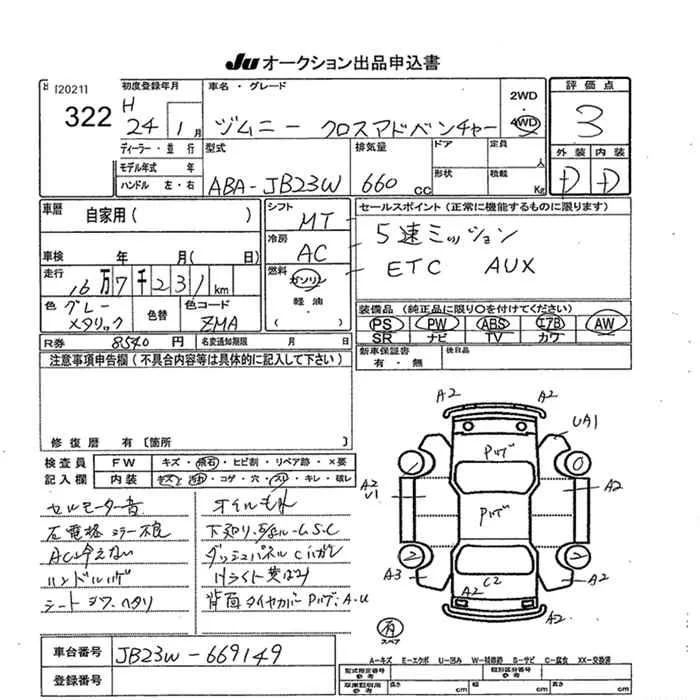 Ju オークション出品申込書
[2021]
322
初度登録年月
H
24 1月
ディーラー・並 行
モデル年式 年
ハンドル 左・右
車名・グレード
ジムニー クロスアドベンチャー
2WD
・
4WD
評価点
3
外装 内装
D D
型式
ABA-JB23W
排気量
660 cc
ドア
形状
定員
人
積載
Kg
車歴
自家用( )
車検 年 月( 日)
走行
16万7千231km
色 グレーメタリック
色替
色コード
ZMA
シフト
MT
冷房
AC
燃料
ガソリン
軽油
( )
セールスポイント(正常に機能するものに限ります)
5速ミッション
ETC AUX
装備品(純正品に限り○を付けてください)
PS PW ABS エアB AW
SR ナビ TV カワ
R券 8540円
名変通知期限 月 日
新車保証書
有・無
後日品
注意事項申告欄(不具合内容等は具体的に記入して下さい)
修復歴 有[箇所 ]
検査員 FW キズ・飛石・ヒビ割・リペア跡・×要
記入欄 内装 キズ・汚れ・コゲ・穴・スレ・キレ・破レ
セルモーター音
左電格ミラー不良
AC冷えない
ハンドルハゲ
シートシワ・ヘタリ
オイルもれ
ダッシュパネルCハガレ
Hライト黄ばみ
背面タイヤカバー
A2 A2
UA1
Pハゲ
A2
U1
A2
Pハゲ
A3
C2
A2
A2
A2
有
スペア
車台番号 JB23W-669149
登録番号
A-キズ E-エクボ U-凹み W-補修跡 S-サビ C-腐食 XX-交換済
型式指定番号
参考
類別区分番号
参考
車庫証明用
参考
長さ cm 幅 cm 高さ cm